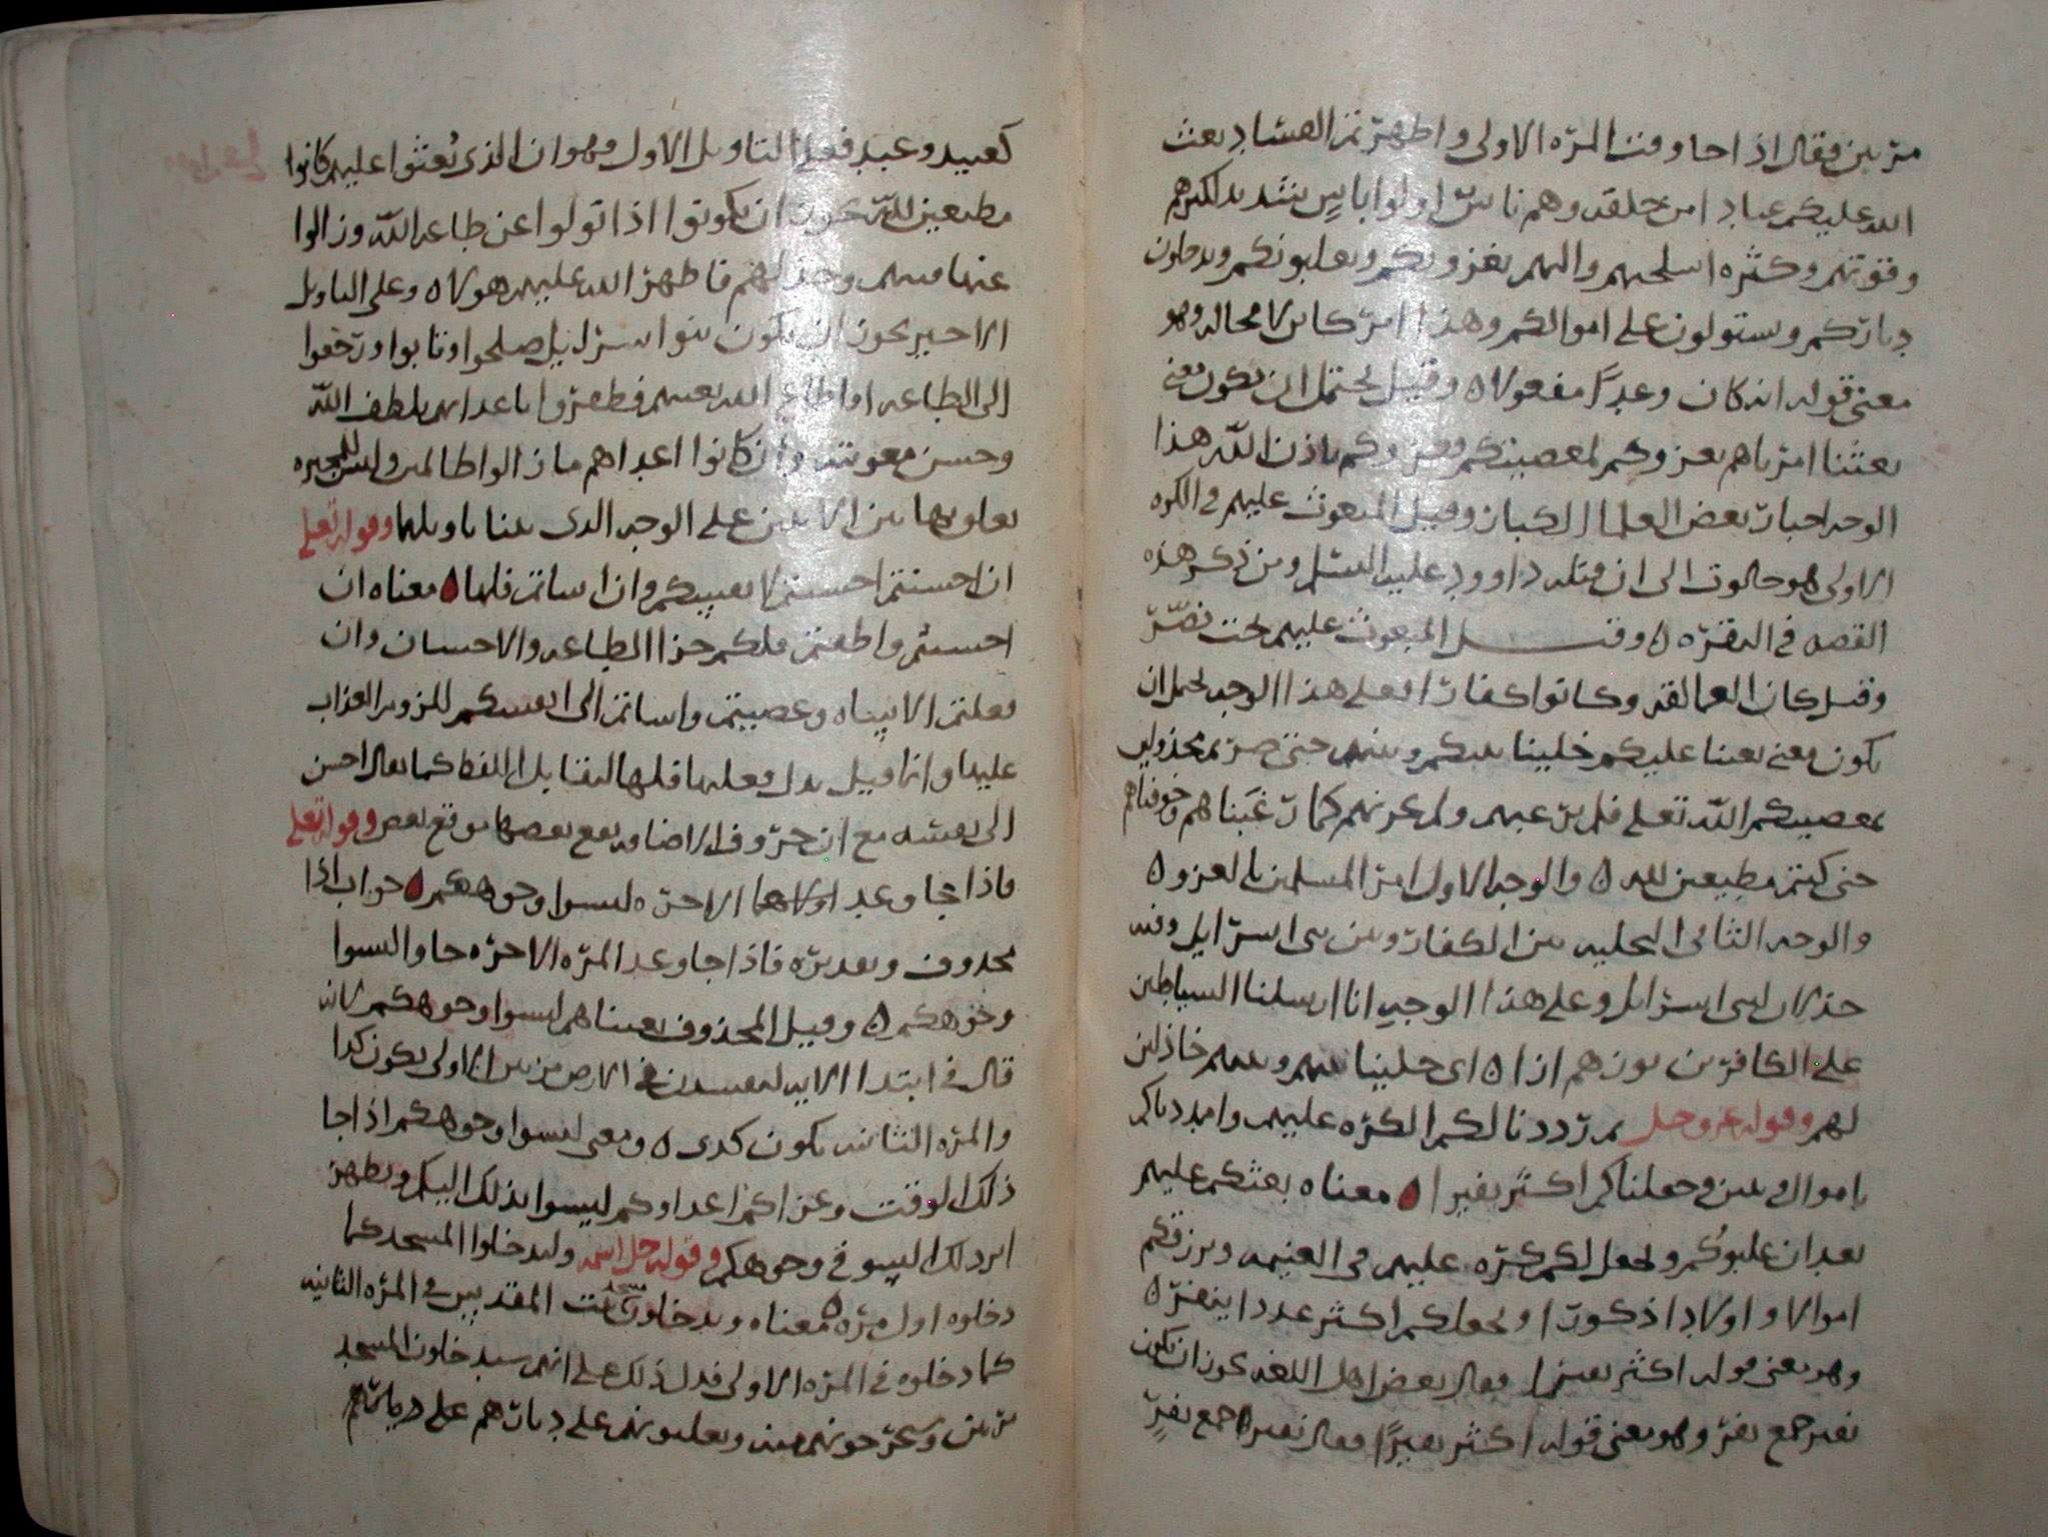 مرتين فقال اذا جا وقت المرة الاولى واظهرتم الفساد بعث
الله عليكم عبادا من خلقه وهم ناس اولوا باس شديد لكبرهم
وقوتهم وكثرة اسلحتهم والتهم يغزونكم ويغلبونكم ويدخلون
دياركم ويستولون على اموالكم وهذا امر كاين لا محاله وهو
معنى قوله انه كان وعدًا مفعولا ٥ وقيل يحتمل ان يكون معنى
بعثنا امرناهم بغزوكم لمعصيتكم فغزوكم باذن الله هذا
الوجه اختيار بعض العلما الكبار وقيل المبعوث عليهم في الكره
الاولى هو جالوت الى ان قتله داوود عليه السلم ومن ذكر هذه
القصه في البقره ٥ وقيل المبعوث عليهم بخت نصّر
وقيل كان العمالقه وكانوا كفارا فعلى هذا الوجه يحتمل ان
يكون معنى بعثنا عليكم خلينا بينكم وبينهم حتى صرتم مخذولين
بمعصيتكم الله تعلى فلم نرغبهم ولم نخوفهم كما رغّبناهم وخوفناهم
حتى كنتم مطيعين لله ٥ والوجه الاول امر المسلمين بالغزو ٥
والوجه الثاني التخليه بين الكفار وبين بني اسرايل وفيه
خذلان لبني اسرايل وعلى هذا الوجه انا ارسلنا الشياطين
على الكافرين توزهم ازا ٥ اي خلينا بينهم وبينهم خاذلين
لهم وقوله عز وجل ثم رددنا لكم الكره عليهم وامددناكم
باموال وبنين وجعلناكم اكثر نفيرا ٥ معناه يعثكم عليهم
بعد ان غلبوكم ويجعل لكم كرّه عليهم في الغنيمه ويرزقكم
اموالا واولادا ذكورا ويجعلكم اكثر عددا ينفر ٥
وهو يعنى قوله اكثر نفيرا فقال بعض اهل اللغه يجوز ان يكون
نفير جمع نفر وهو يعنى قوله اكثر نفيرًا فقال نفير جمع نفرٍ
كعبيد وعبد فعلى التاويل الاول وهو ان الذي بُعثوا عليهم كانوا
مطيعين لله يجوز ان يكونوا اذا تولوا عن طاعه الله وزالوا
عنها منهم وخذلهم فاظهر الله عليهم هولا ٥ وعلى التاويل
الاخير يجوز ان يكون بنوا اسرايل صلحوا وتابوا ورجعوا
الى الطاعه او اطاع الله بعضهم فظفروا باعدايهم بلطف الله
وحسن معونته وان كانوا اعداهم ما زالوا ظالمين وليس للمجبره
تعلق بهاتين الايتين على الوجه الذي بينا تاويلها وقوله تعلى
ان احسنتم احسنتم لانفسكم وان اساتم فلها ٥ معناه ان
احسنتم واطعتم فلكم جزا الطاعه والاحسان وان
فعلتم الاساه وعصيتم واساتم الى انفسكم للزوم العذاب
عليها وانما قيل بدل فعليها فلها لتقابل اللفظ كما يقال احسن
الى نفسه مع ان حروف الاضافه يقع بعضها موقع بعض وقوله تعلى
فاذا جا وعد اولاهما الاخره ليسوا وجوهكم ٥ جواب اذا
محذوف وتقديره فاذا جا وعد المره الاخره جاوا ليسوا
وجوهكم ٥ وقيل المحذوف بعثناهم ليسوا وجوهكم لانه
قال في ابتدا الايه لتفسدن في الارض مرتين الاولى يكون كذا
والمره الثانيه يكون كذى ٥ ومعنى ليسوا وجوهكم اذا جا
ذلك الوقت وغزاكم اعداوكم ليسوا بذلك اليكم ويظهر
اثر ذلك السو في وجوهكم وقوله جل اسمه وليدخلوا المسجد كما
دخلوه اول مره ٥ معناه ويدخلون مسجد بيت المقدس في المره الثانيه
كما دخلوه في المره الاولى فدل ذلك على انهم سيدخلون المسجد
مرتين ويخرجونهم منه ويغلبونهم على ديارهم على ديارهم